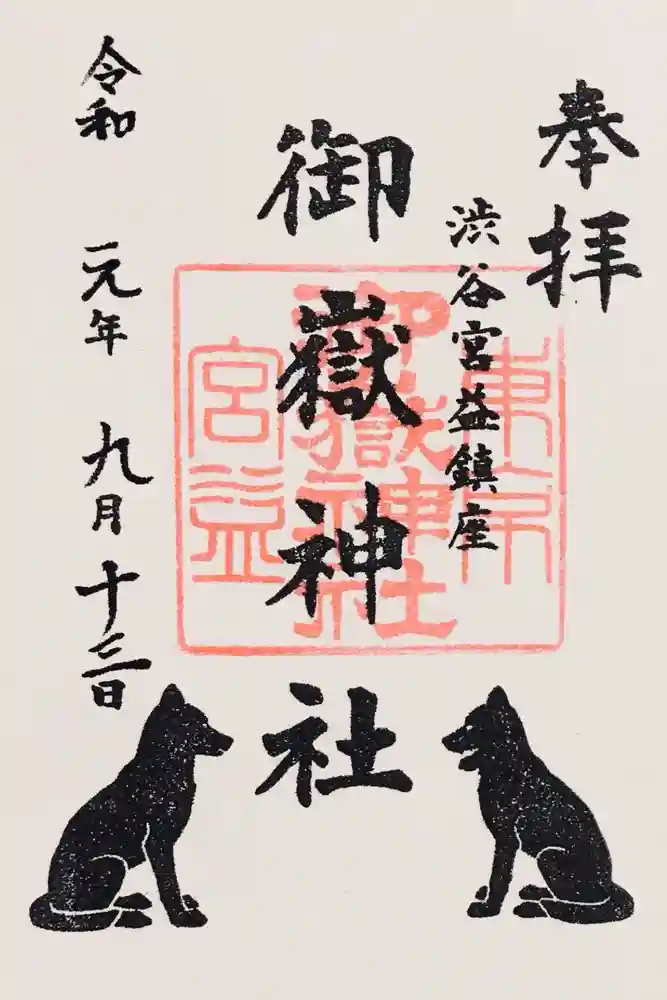 奉拝
渋谷宮益鎮座
御嶽神社
令和元年九月十三日
東京
御嶽神社
宮益